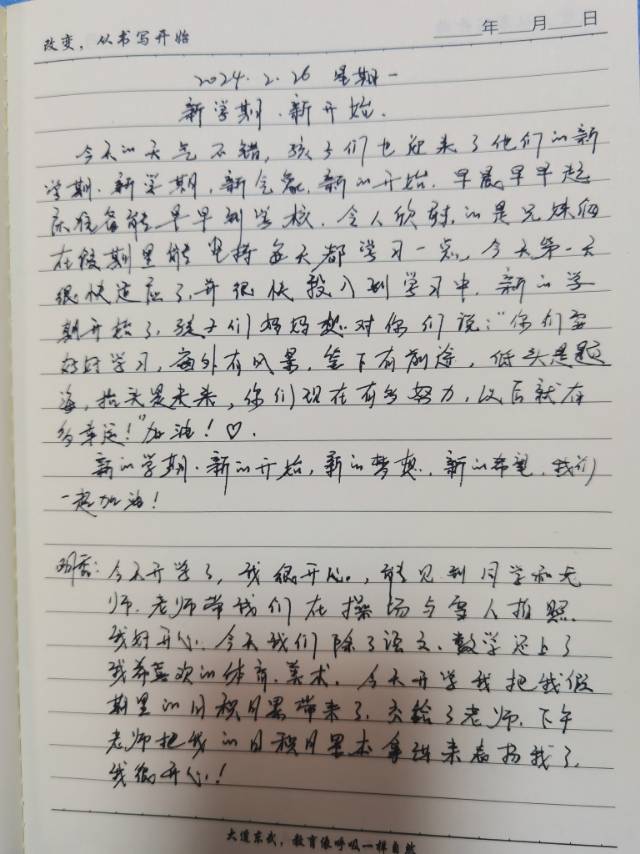 改变，从书写开始
年 月 日
2024.2.26 星期一
新学期.新开始.
今天的天气不错，孩子们也迎来了他们的新
学期.新学期，新气象.新的开始.早晨早早起
床准备能早早到学校.令人欣慰的是兄妹俩
在假期里能坚持每天都学习一点，今天第一天
很快适应了，并很快投入到学习中.新的学
期开始了，孩子们妈妈想对你们说："你们要
好好学习，窗外有风景，笔下有前途，低头是题
海，抬头是未来，你们现在有多努力，以后就有
多幸运！"加油！♡.
新的学期.新的开始，新的梦想.新的希望.我们
一起加油！
今天开学了，我很开心，能见到同学和老
师.老师带我们在操场与雪人拍照.
我好开心.今天我们除了语文、数学还上了
我最喜欢的体育.美术.今天开学我把我假
期里的日积月累带来了.交给了老师.下午
老师把我的日积月累本拿进来表扬我了.
我很开心！
大道东武，教育像呼吸一样自然